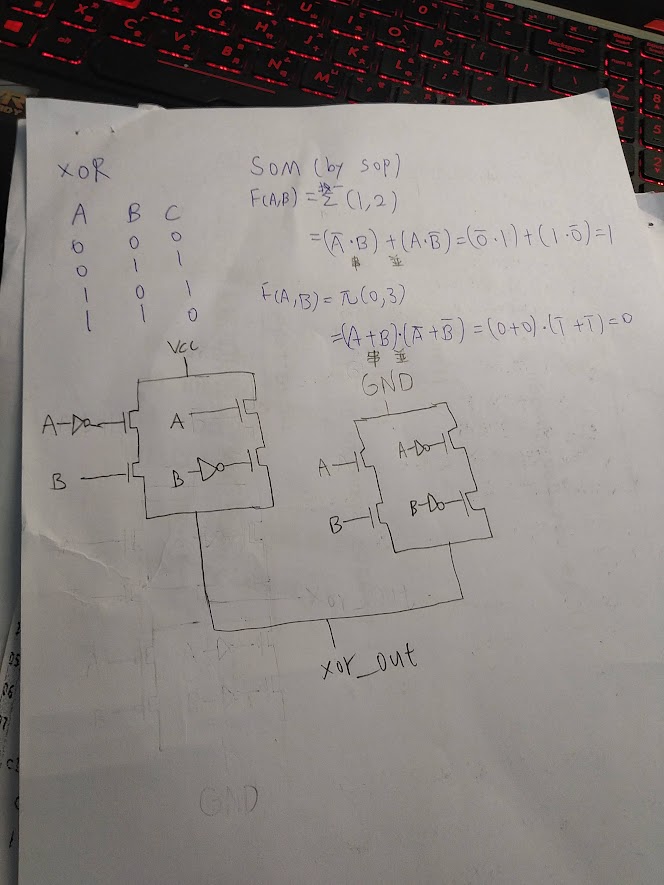 XOR
A B C
0 0 0
0 1 1
1 0 1
1 1 0
SOM (by SOP)
F(A,B) = Σ (1,2)
=(Ā·B) + (A·B̄) = (0̄·1) + (1·0̄) = 1
串 並
F(A,B) = π(0,3)
=(A+B)·(Ā+B̄) = (0+0)·(1̄+1̄) = 0
串 並
VCC
A A
B B
GND
A A
B B
xor_out
GND